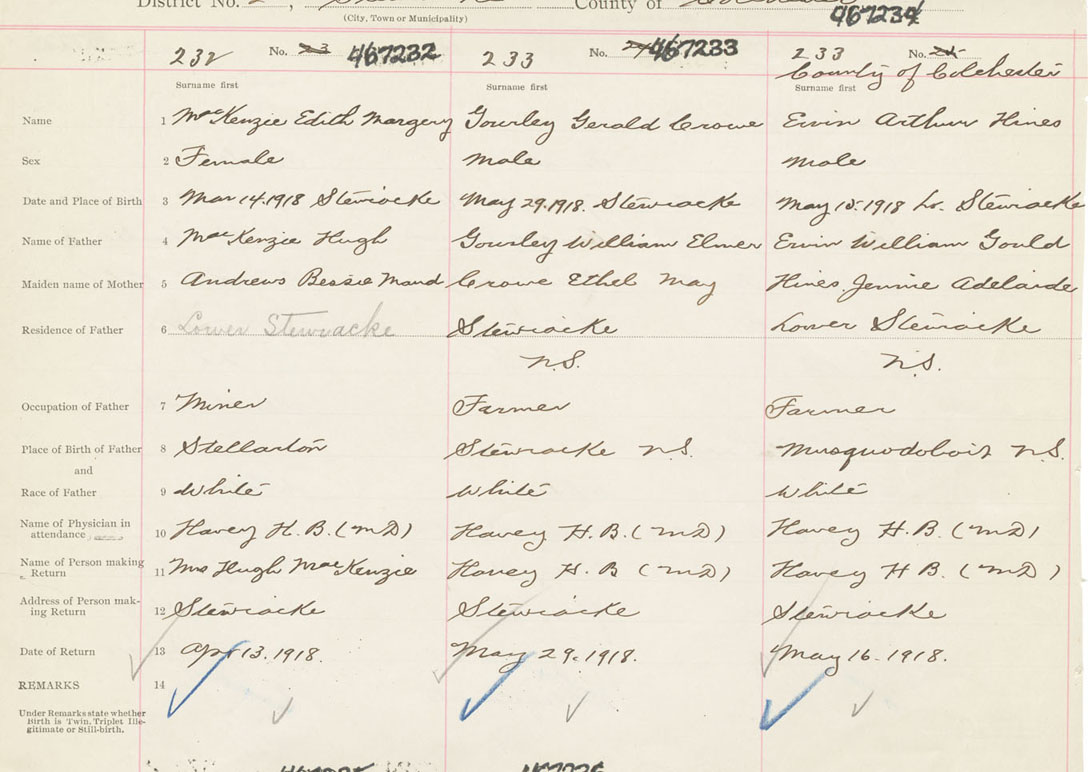 District No. 2, County of
(City, Town or Municipality)
467234
232 No. 23 467232 233 No. 24 467233 233 No. 25
County of Colchester
Surname first Surname first Surname first
Name 1 MacKenzie Edith Margery Gourley Gerald Crowe Ervin Arthur Hines
Sex 2 Female Male Male
Date and Place of Birth 3 Mar 14. 1918 Stewiacke May 29. 1918. Stewiacke May 15. 1918 Lr. Stewiacke
Name of Father 4 MacKenzie Hugh Gourley William Elmer Ervin William Gould
Maiden name of Mother 5 Andrews Bessie Maud Crowe Ethel May Hines Jennie Adelaide
Residence of Father 6 Lower Stewiacke Stewiacke Lower Stewiacke
N.S. N.S.
Occupation of Father 7 Miner Farmer Farmer
Place of Birth of Father 8 Stellarton Stewiacke N.S. Musquodoboit N.S.
and
Race of Father 9 White White White
Name of Physician in
attendance 10 Havey H. B. (MD) Havey H. B. (MD) Havey H. B. (MD)
Name of Person making
Return 11 Mrs Hugh MacKenzie Havey H. B (MD) Havey H B. (MD)
Address of Person mak-
ing Return 12 Stewiacke Stewiacke Stewiacke
Date of Return 13 Apr 13. 1918. May 29. 1918. May 16. 1918.
REMARKS 14
Under Remarks state whether
Birth is Twin, Triplet Ille-
gitimate or Still-birth.